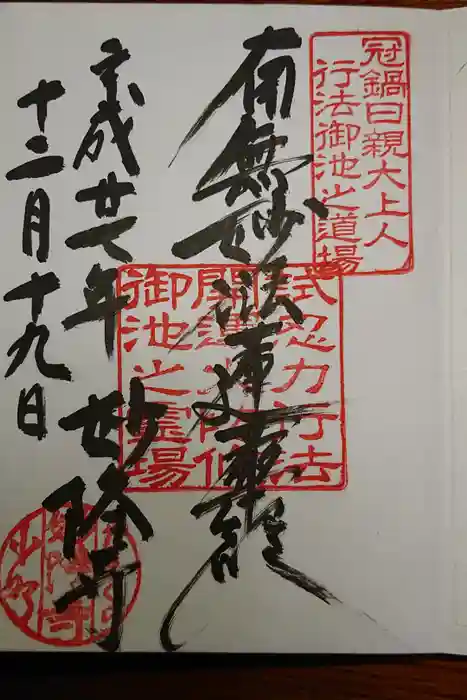 冠鍋日親大上人
行法御池之道場
南無妙法蓮華経
試忍力行法
開運
御池之霊場
平成廿七年 妙隆寺
十二月十九日